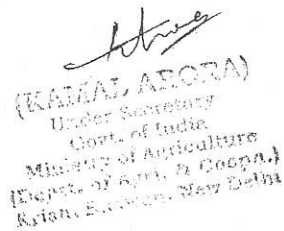 (KAMAL ARORA)
Under Secretary
Govt. of India
Ministry of Agriculture
(Deptt. of Agri. & Coopn.)
Krishi Bhawan, New Delhi